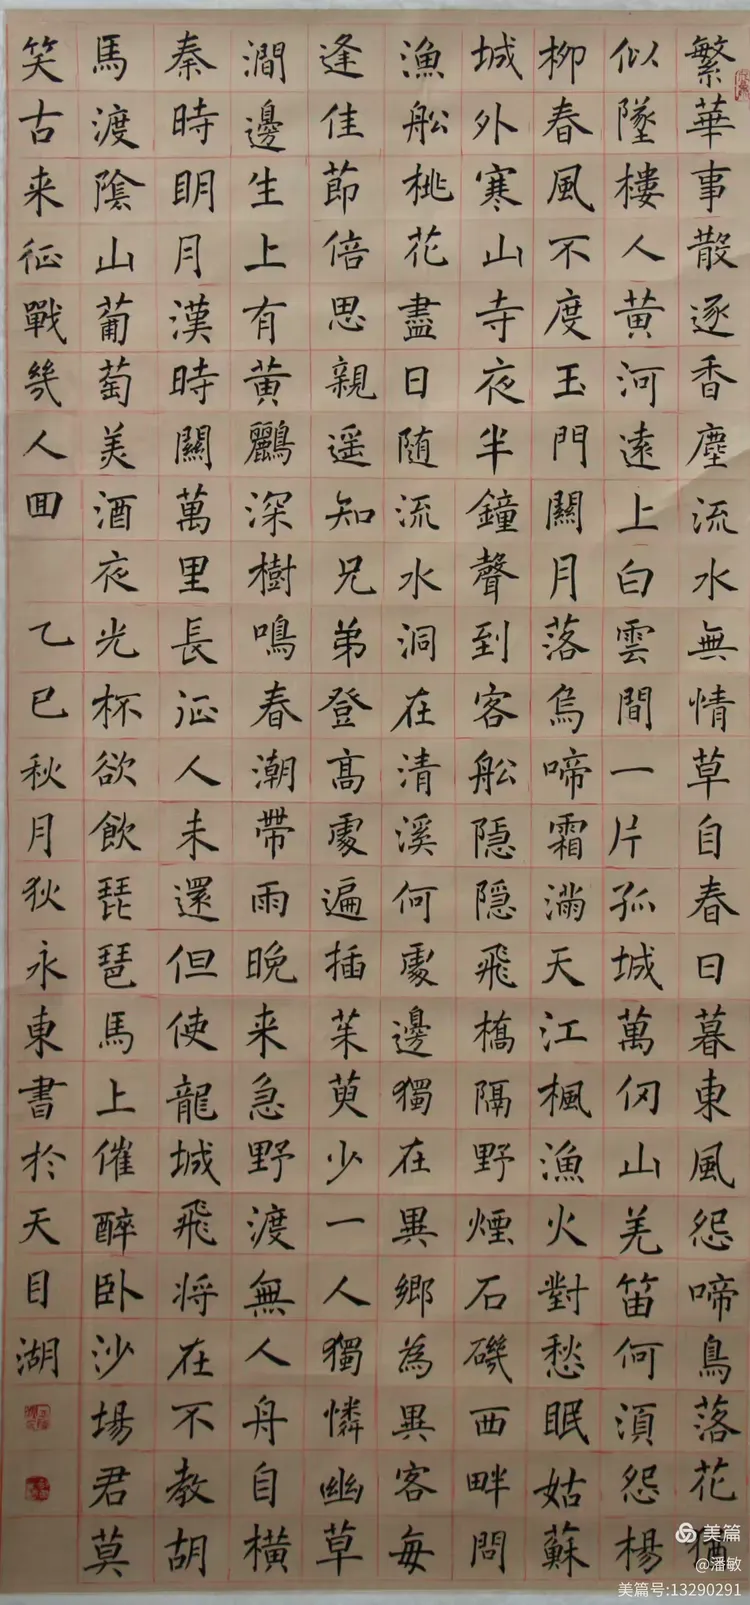 繁華事散逐香塵流水無情草自春日暮東風怨啼鳥落花猶
似墜樓人黃河遠上白雲間一片孤城萬仞山羌笛何須怨楊
柳春風不度玉門關月落烏啼霜滿天江楓漁火對愁眠姑蘇
城外寒山寺夜半鐘聲到客船隱隱飛橋隔野煙石磯西畔問
漁船桃花盡日随流水洞在清溪何處邊獨在異鄉為異客每
逢佳節倍思親遥知兄弟登高處遍插茱萸少一人獨憐幽草
澗邊生上有黃鸝深樹鳴春潮帶雨晚来急野渡無人舟自橫
秦時明月漢時關萬里長征人未還但使龍城飛将在不教胡
馬渡陰山葡萄美酒夜光杯欲飲琵琶馬上催醉卧沙場君莫
笑古来征戰幾人回 乙巳秋月狄永東書於天目湖
美篇
@潘敏
美篇号:13290291